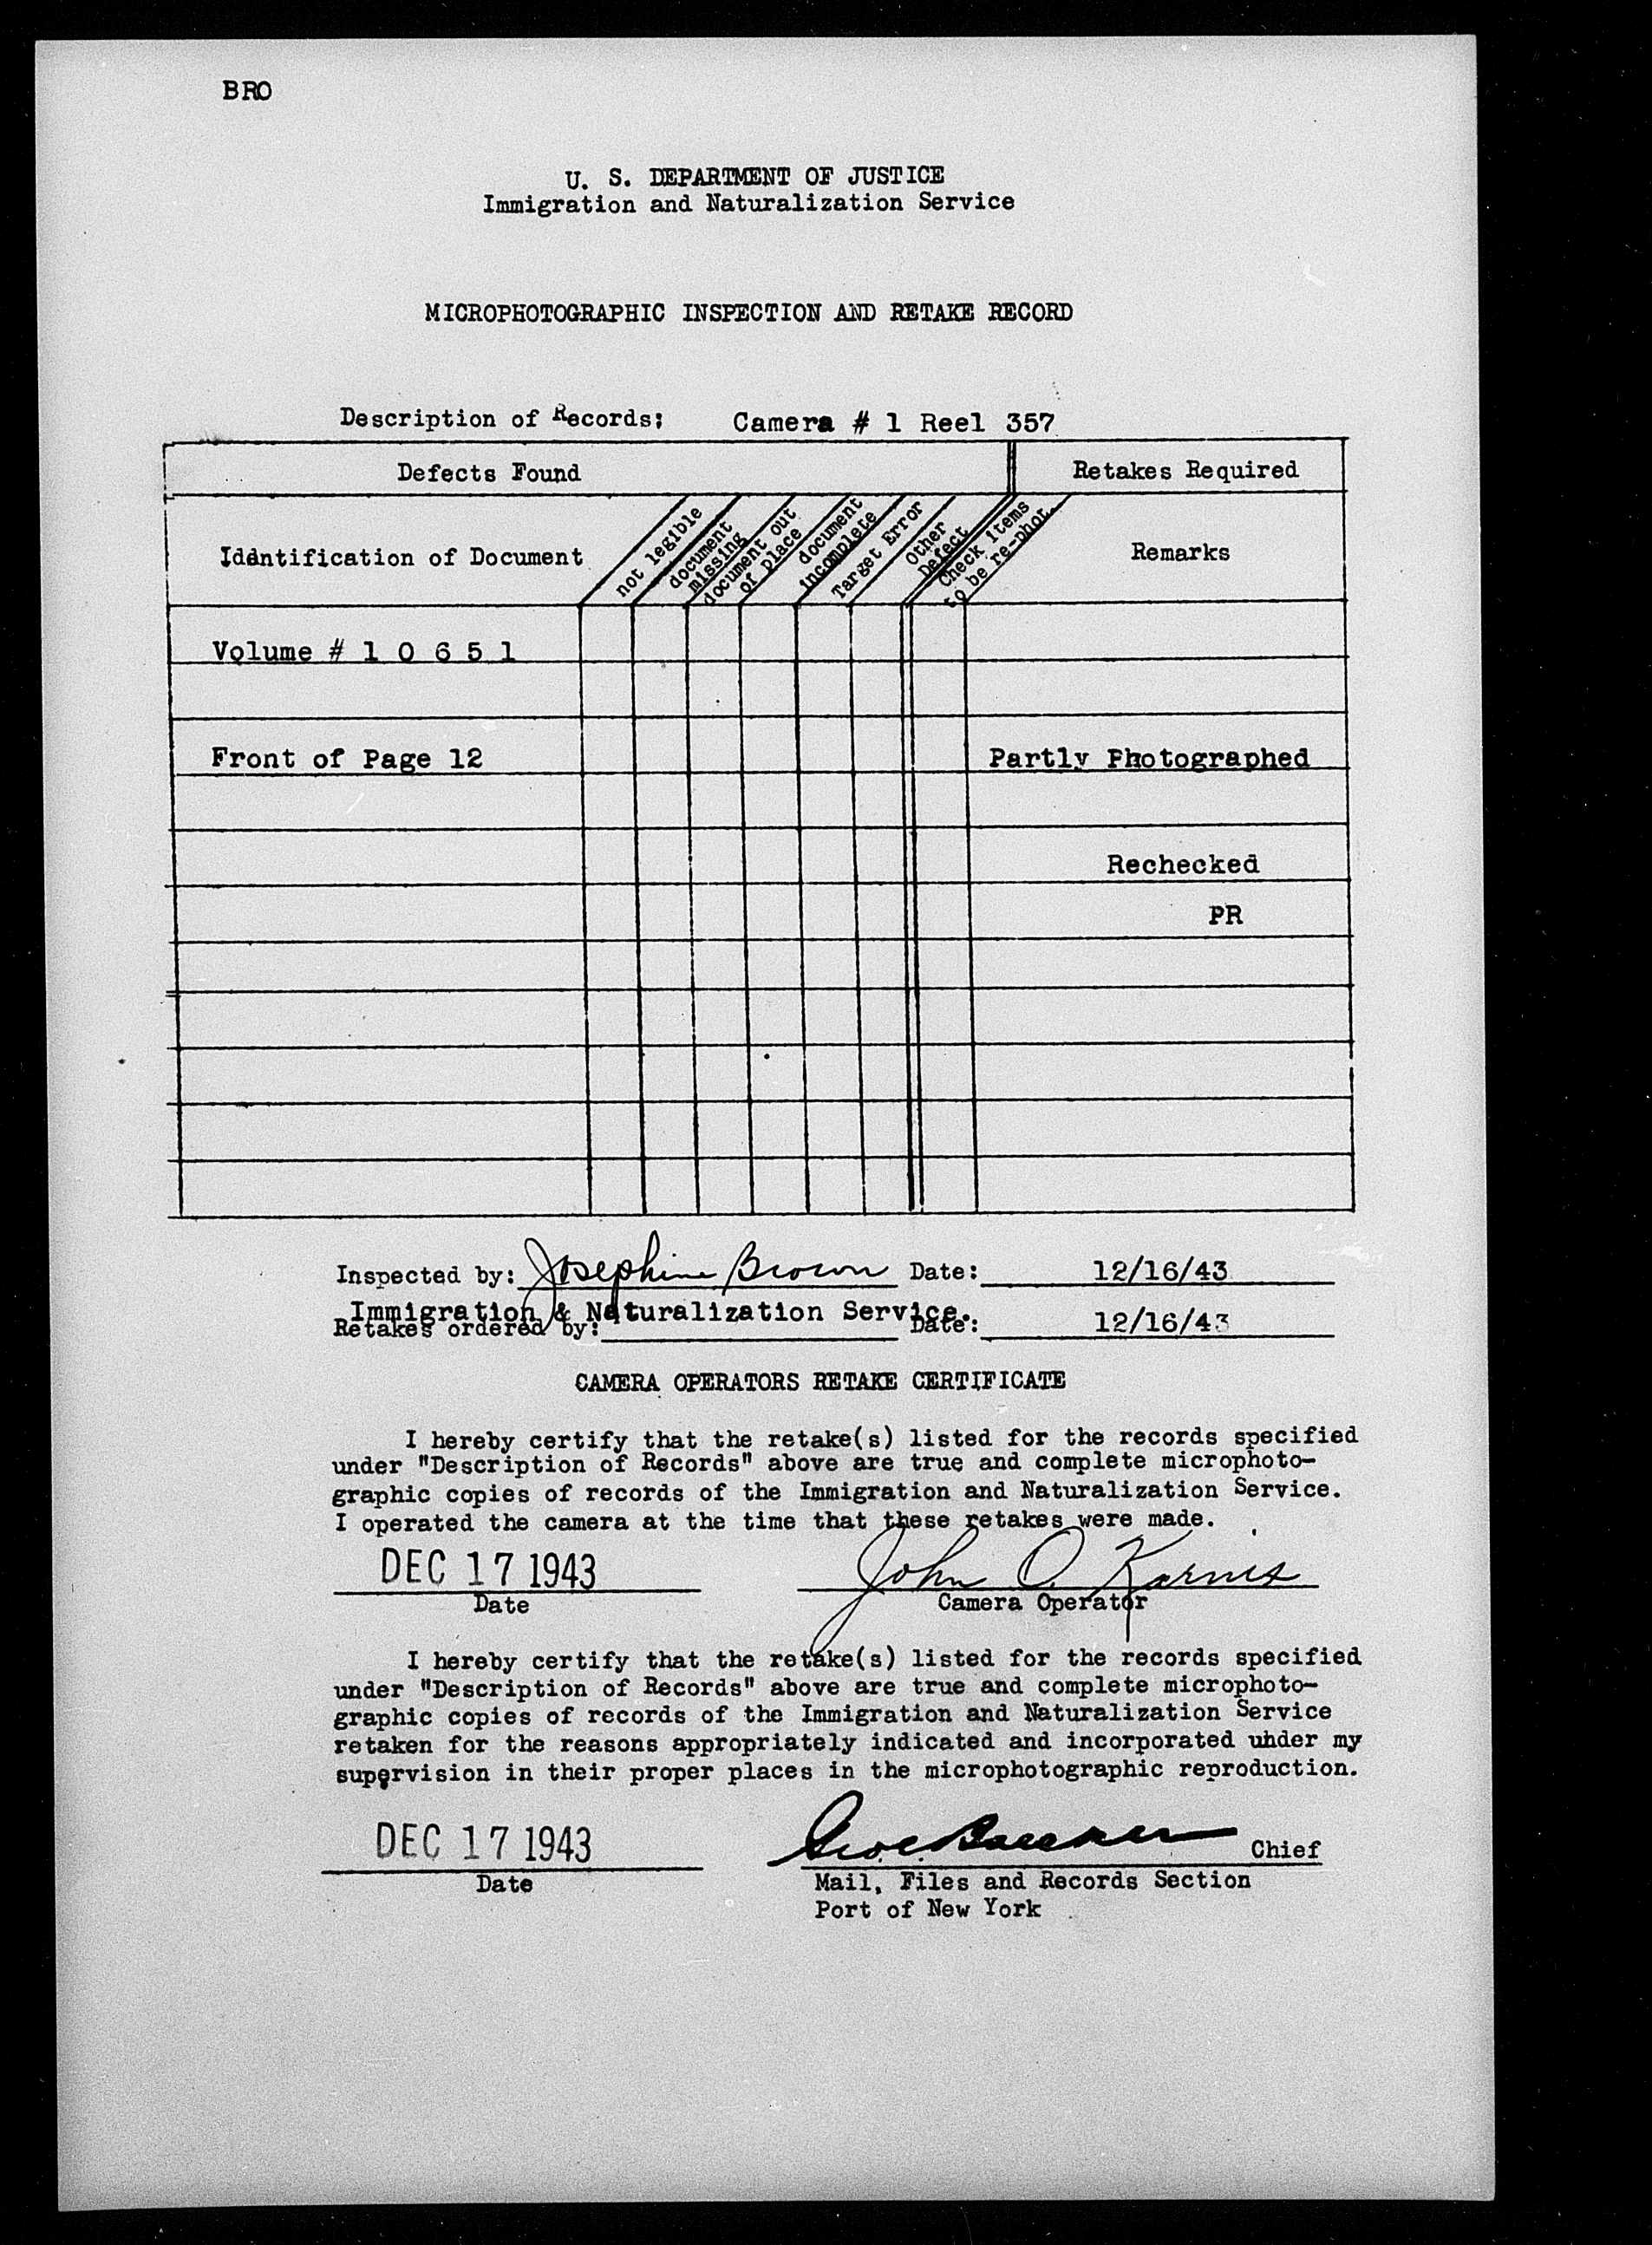 BRO
U. S. DEPARTMENT OF JUSTICE
Immigration and Naturalization Service
MICROPHOTOGRAPHIC INSPECTION AND RETAKE RECORD
Description of Records: Camera # 1 Reel 357
Defects Found Retakes Required
Idéntification of Document
not legible
document missing
document out of place
document incomplete
Target Error
Other Defect
Check items to be re-phot.
Remarks
Volume # 1 0 6 5 1
Front of Page 12 Partly Photographed
Rechecked
PR
Inspected by: Josephine Brown Date: 12/16/43
Immigration & Naturalization Service.
Retakes ordered by: Date: 12/16/43
CAMERA OPERATORS RETAKE CERTIFICATE
I hereby certify that the retake(s) listed for the records specified
under "Description of Records" above are true and complete microphoto-
graphic copies of records of the Immigration and Naturalization Service.
I operated the camera at the time that these retakes were made.
DEC 17 1943 John O. Karnis
Date Camera Operator
I hereby certify that the retake(s) listed for the records specified
under "Description of Records" above are true and complete microphoto-
graphic copies of records of the Immigration and Naturalization Service
retaken for the reasons appropriately indicated and incorporated uhder my
supervision in their proper places in the microphotographic reproduction.
DEC 17 1943 Chief
Date Mail, Files and Records Section
Port of New York